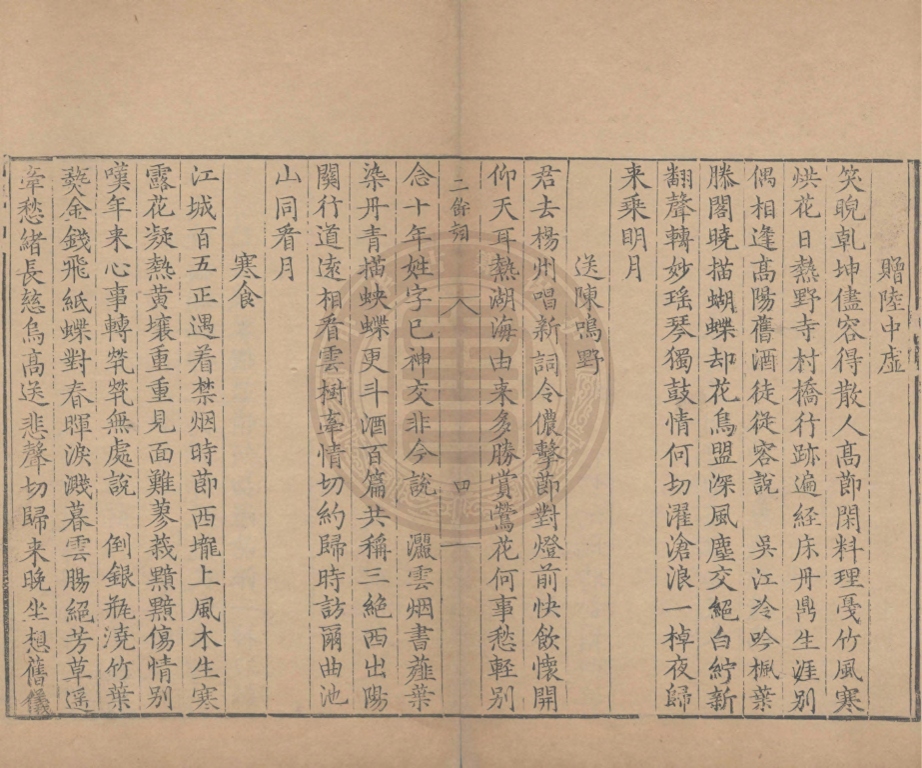 贈陸中虛
笑睨乹坤儘容得散人髙節閑料理戛竹風寒
烘花日熱野寺村橋行跡遍經床丹鼎生涯别
偶相逢髙陽舊酒徒從容說　吳江冷吟楓葉
滕閣曉描蝴蝶却花鳥盟深風塵交絕白紵新
翻聲轉妙瑶琴獨鼓情何切濯滄浪一棹夜歸
来乘明月
送陳鳴野
君去楊州唱新詞令儂擊莭對燈前快飲懷開
仰天耳熱湖海由来多勝賞鶯花何事愁輕别
二餘詞
八
四
念十年姓字已神交非今說　灑雲烟書薤葉
染丹青描蛺蝶更斗酒百篇共稱三絕西出陽
關行道遠相看雲樹牽情切約歸時訪爾曲池
山同看月
寒食
江城百五正遇着禁烟時莭西壠上風木生寒
露花凝熱黄壤重重見面難蓼莪黯黯傷情别
嘆年来心事轉煢煢無處說　倒銀瓶澆竹葉
𤑔金錢飛紙蝶對春暉淚濺暮雲腸絕芳草遥
牽愁緒長慈烏髙送悲聲切歸来晚坐想舊儀